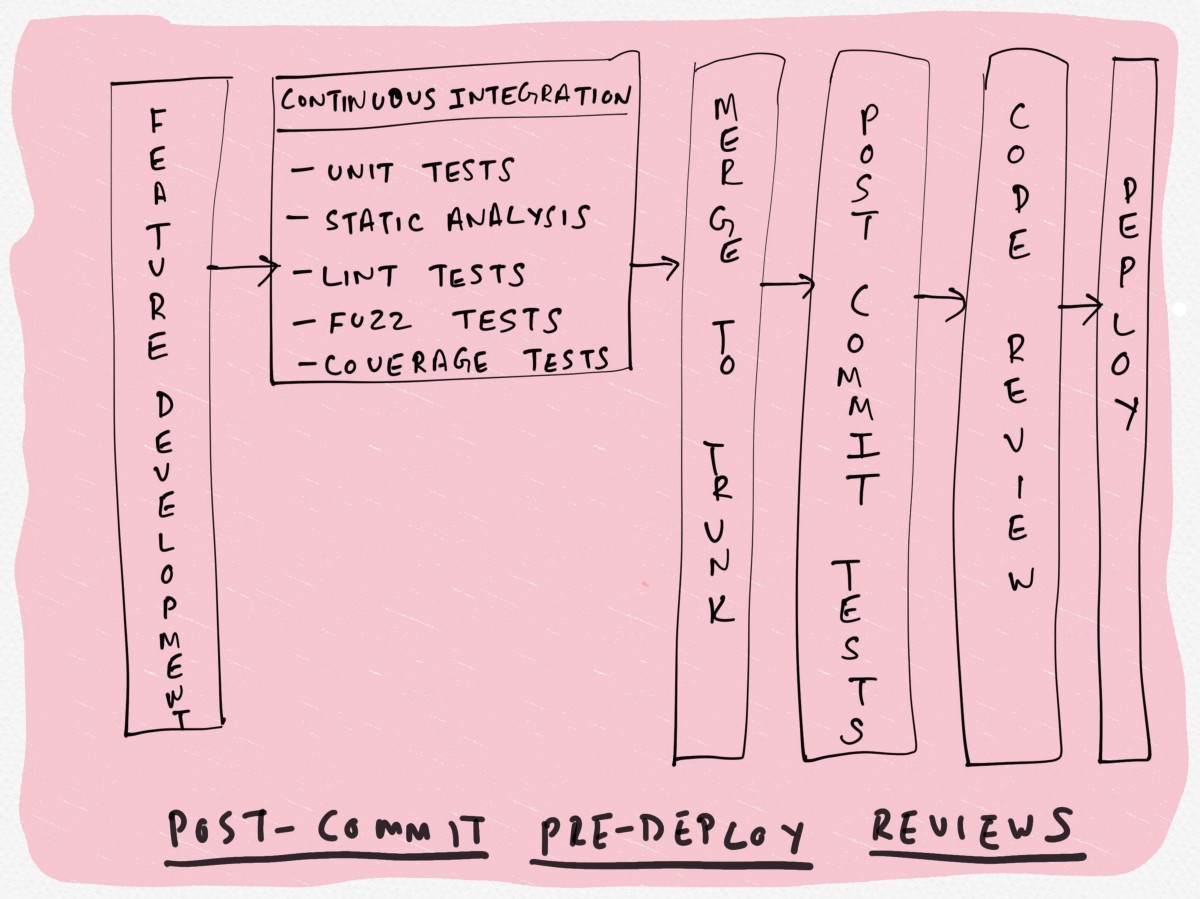 FEATURE DEVELOPMENT
CONTINUOUS INTEGRATION
- UNIT TESTS
- STATIC ANALYSIS
- LINT TESTS
- FUZZ TESTS
- COVERAGE TESTS
MERGE TO TRUNK
POST COMMIT TESTS
CODE REVIEW
DEPLOY
POST-COMMIT PRE-DEPLOY REVIEWS